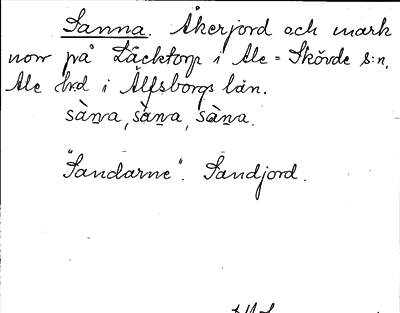 Sanna. Åkerjord och mark
norr på Läcktorp i Ale-Skövde s:n,
Ale hrd i Älfsborgs län.
sàṉa, sàṉa, sàṉa.
"Sandarne". Sandjord.